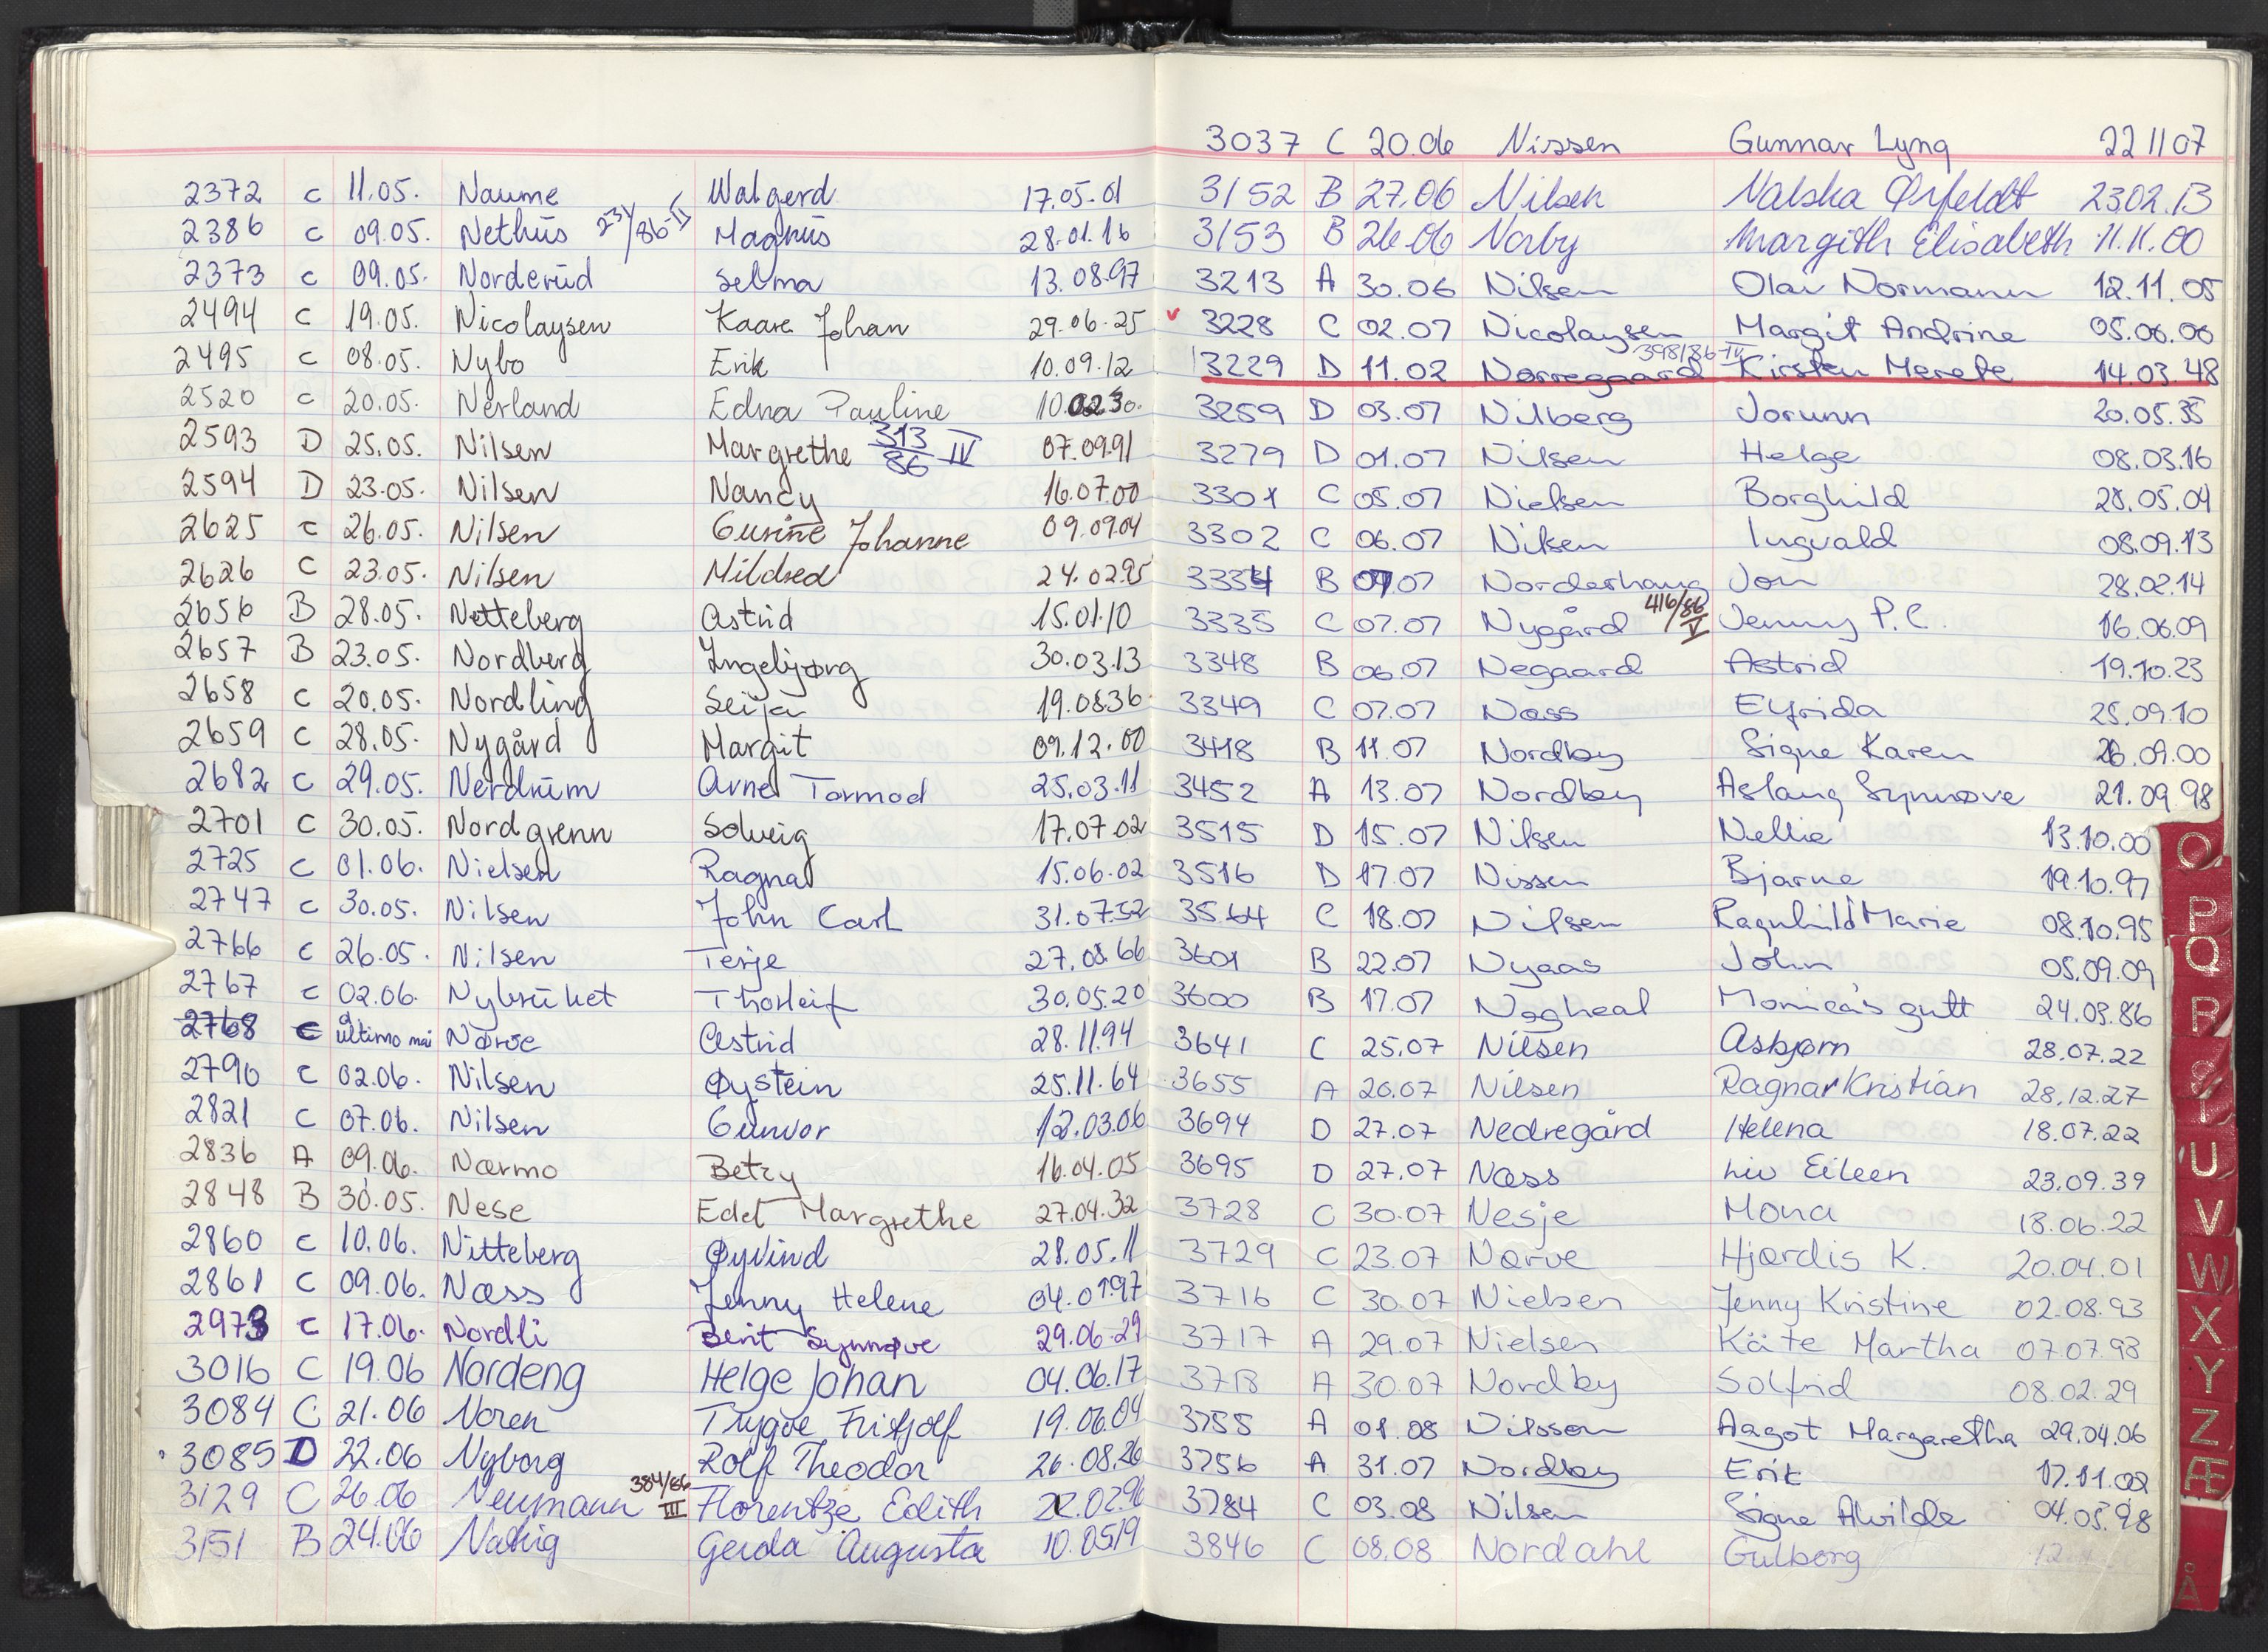 2372 c 11.05. Naume Walgerd 17.05.01
2386 c 09.05. Nethus 234/86-II Magnus 28.01.16
2373 c 09.05. Norderud Selma 13.08.97
2494 c 19.05. Nicolaysen Kaare Johan 29.06.25
2495 c 08.05. Nybo Erik 10.09.12
2520 c 20.05. Nerland Edna Pauline 10.02.30.
2593 D 25.05. Nilsen Margrethe 313/86 IV 07.09.91
2594 D 23.05. Nilsen Nancy 16.07.00
2625 c 26.05. Nilsen Gurine Johanne 09.09.04
2626 C 23.05. Nilsen Mildred 24.02.95
2656 B 28.05. Netteberg Astrid 15.01.10
2657 B 23.05. Nordberg Ingebjørg 30.03.13
2658 c 20.05. Nordling Seija 19.08.36
2659 c 28.05. Nygård Margit 09.12.00
2682 c 29.05. Nerdrum Arne Tormod 25.03.11
2701 C 30.05. Nordgrenn Solveig 17.07.02
2725 c 01.06. Nielsen Ragna 15.06.02
2747 c 30.05. Nilsen John Carl 31.07.52
2766 c 26.05. Nilsen Terje 27.08.66
2767 c 02.06. Nybruket Thorleif 30.05.20
2768 c ultimo mai Nørve Astrid 28.11.94
2790 c 02.06. Nilsen Øystein 25.11.64
2821 C 07.06. Nilsen Gunvor 12.03.06
2836 A 09.06. Nærmo Betzy 16.04.05
2848 B 30.05. Nese Edel Margrethe 27.04.32
2860 c 10.06. Nitteberg Øyvind 28.05.11
2861 C 09.06. Næss Jenny Helene 04.01.97
2973 c 17.06. Nordli Berit Synnøve 29.06.29
3016 C 19.06 Nordeng Helge Johan 04.06.17
3084 C 21.06 Noren Trygve Fritjolf 19.06.04
3085 D 22.06 Nyborg Rolf Theodor 26.08.26
3129 C 26.06 Neumann 384/86 III Florentze Edith 22.02.96
3151 B 24.06 Gerda Augusta 10.05.19
3037 C 20.06 Nissen Gunnar Lyng 22 11 07
3152 B 27.06 Nilsen Ørfeldt 23.02.13
3153 B 26.06 Norby Margith Elisabeth 11.11.00
3213 A 30.06 Nilsen Olav Normann 12.11.05
v 3228 C 02.07 Nicolaysen Margit Andrine 05.06.00
3229 D 11.02 Nørregaard 398/86-IV Kirsten Merete 14.03.48
3259 D 03.07 Nilberg Jorunn 20.05.35
3279 D 01.07 Nilsen Helge 08.03.16
3301 C 05.07 Nielsen Borghild 28.05.04
3302 C 06.07 Nilsen Ingvald 08.09.13
3334 B 07.07 Norderhaug Jon 28.02.14
3335 C 07.07 Nygård 416/86 V Jenny P.C. 16.06.09
3348 B 06.07 Negaard Astrid 19.10.23
3349 C 07.07 Næss Elfrida 25.09.10
3418 B 11.07 Nordby Signe Karen 26.09.00
3452 A 13.07 Nordby Aslaug Synnøve 21.09.98
3515 D 15.07 Nilsen Nellie 13.10.00
3516 D 17.07 Nissen Bjarne 19.10.97
3564 C 18.07 Nilsen Ragnhild Marie 08.10.95
3601 B 22.07 Nyaas John 05.09.09
3600 B 17.07 Nogheal Monica's gutt 24.03.86
3641 C 25.07 Nilsen Asbjørn 28.07.22
3655 A 20.07 Nilsen Ragnar Kristian 28.12.27
3694 D 27.07 Nedregård Helena 18.07.22
3695 D 27.07 Næss Liv Eileen 23.09.39
3728 C 30.07 Nesje Mona 18.06.22
3729 C 23.07 Nørve Hjørdis K. 20.04.01
3716 C 30.07 Nielsen Jenny Kristine 02.08.93
3717 A 29.07 Nielsen Käte Martha 07.07.93
3718 A 30.07 Nordby Solfrid 08.02.29
3755 A 01.08 Nilsson Aagot Margaretha 29.04.06
3756 A 31.07 Nordby Erik 17.11.02
3784 C 03.08 Nilsen Signe Alvilde 04.05.98
3846 C 08.08 Nordahl Gulborg 12
O
P
Q
R
S
T
U
V
W
X
Y
Z
Æ
Å